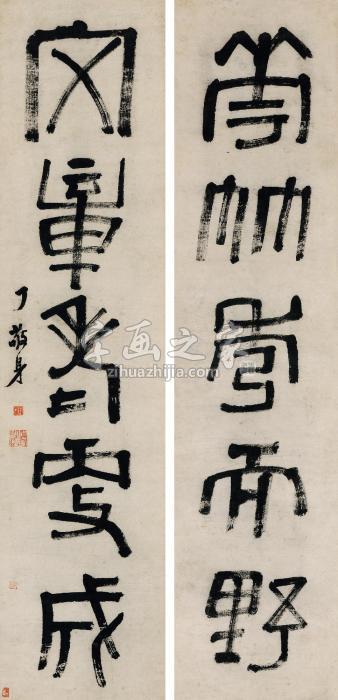 華竹秀而野
文章老更成
丁敬身
字画之家
zihuazhijia.com